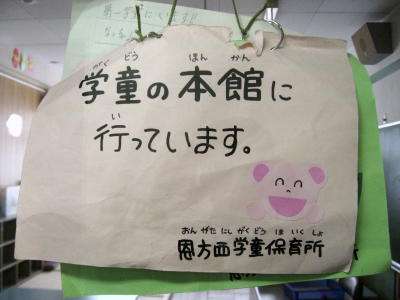 がく どう ほん かん
学童の本館に
い
行っています。
おん がた にし がく どう ほ いく しょ
恩方西学童保育所